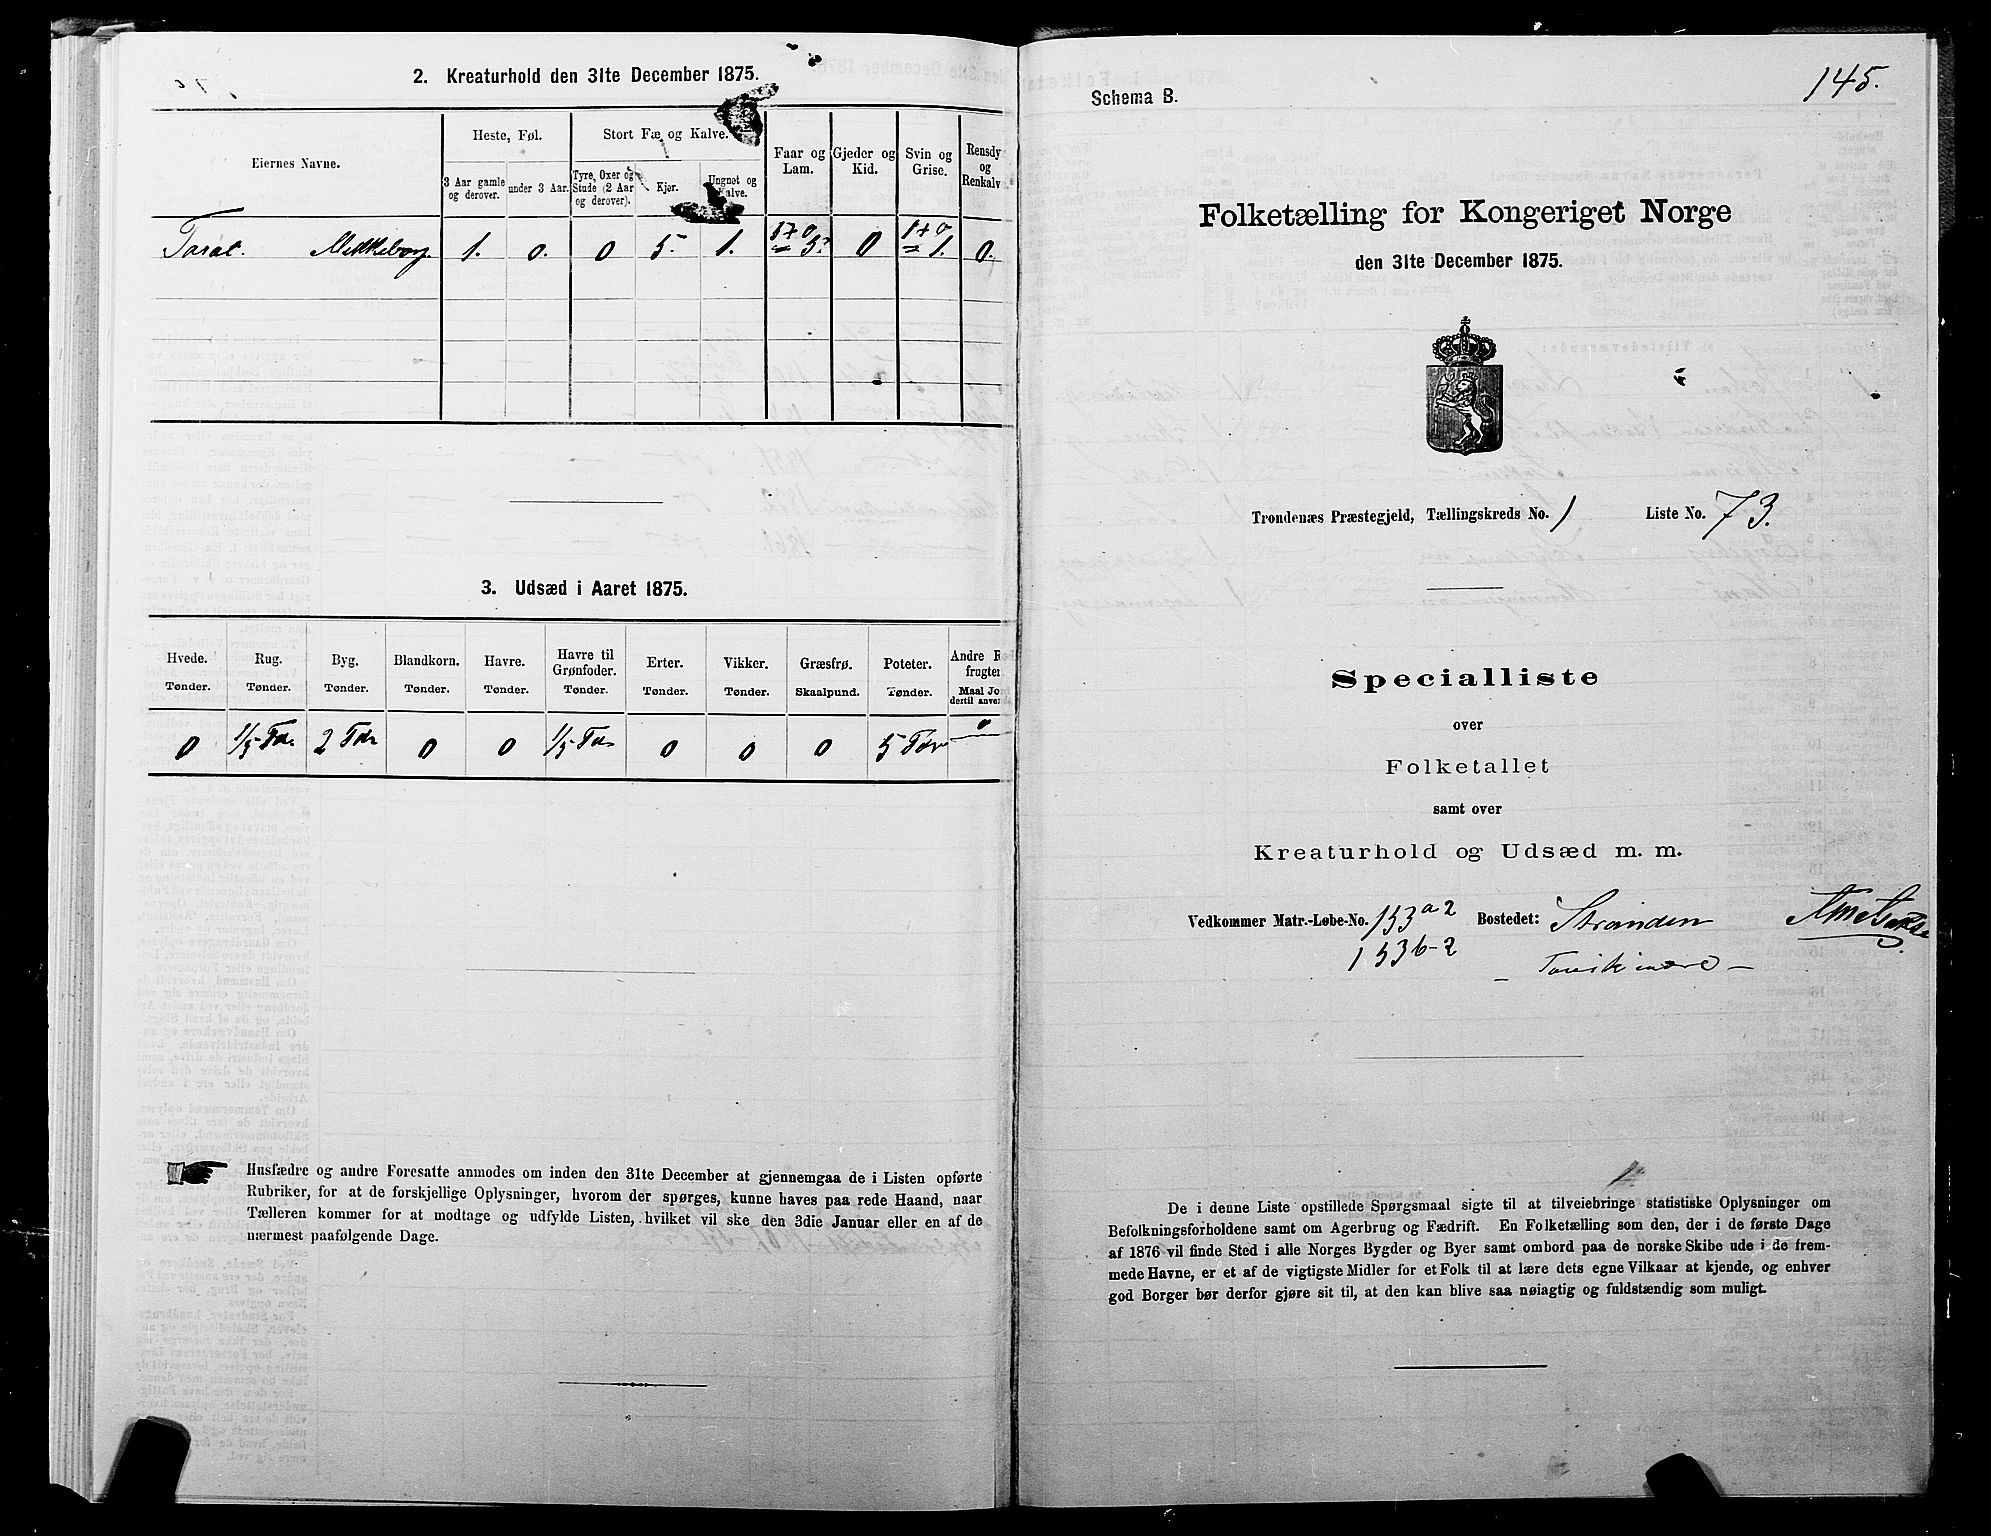 2. Kreaturhold den 31te December 1875.
Eiernes Navne.
Heste, Føl.
Stort Fæ og Kalve.
Faar og
Lam.
Gjeder og
Kid.
Svin og
Grise.
Rensdy
og
Renkalv
3 Aar gamle
og derover.
under 3 Aar.
Tyre, Oxer og
Stude (2 Aar
og derover).
Kjør.
Ungnøt og
Kalve.
1. 0. 0 5. 1. 0 1. 0.
3. Udsæd i Aaret 1875.
Hvede.
Tønder.
Rug.
Tønder.
Byg.
Tønder.
Blandkorn.
Tønder.
Havre.
Tønder.
Havre til
Grønfoder.
Tønder.
Erter.
Tønder.
Vikker.
Tønder.
Græsfrø.
Skaalpund.
Poteter.
Tønder.
Andre R
frugter
Maal Jo
dertil anven
0 1/5 Tdr 2 Tdr 0 0 1/5 Tdr 0 0 0 5 Tdr 0
Husfædre og andre Foresatte anmodes om inden den 31te December at gjennemgaa de i Listen opførte
Rubriker, for at de forskjellige Oplysninger, hvorom der spørges, kunne haves paa rede Haand, naar
Tælleren kommer for at modtage og udfylde Listen, hvilket vil ske den 3die Januar eller en af de
nærmest paafølgende Dage.
145.
Schema B.
Folketælling for Kongeriget Norge
den 31te December 1875.
Trondenæs Præstegjeld, Tællingskreds No. 1 Liste No. 73.
Specialliste
over
Folketallet
samt over
Kreaturhold og Udsæd m. m.
Vedkommer Matr.-Løbe-No. 153 a 2 Bostedet: Stranden
153 b-2
De i denne Liste opstillede Spørgsmaal sigte til at tilveiebringe statistiske Oplysninger om
Befolkningsforholdene samt om Agerbrug og Fædrift. En Folketælling som den, der i de første Dage
af 1876 vil finde Sted i alle Norges Bygder og Byer samt ombord paa de norske Skibe ude i de frem-
mede Havne, er et af de vigtigste Midler for et Folk til at lære dets egne Vilkaar at kjende, og enhver
god Borger bør derfor gjøre sit til, at den kan blive saa nøiagtig og fuldstændig som muligt.